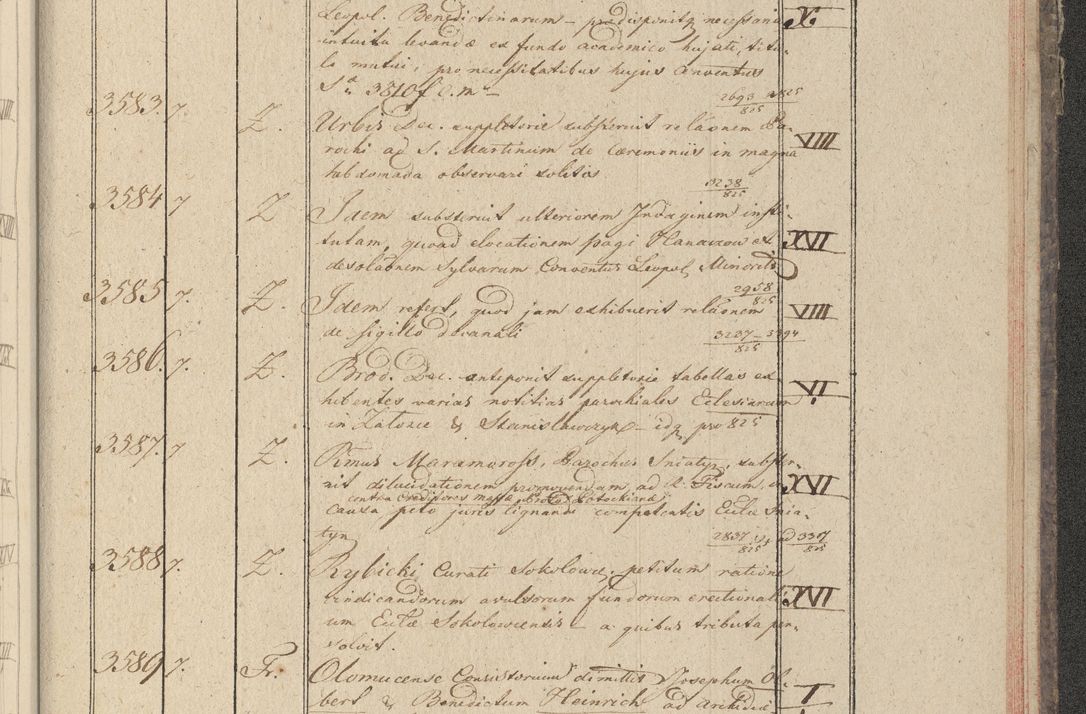 Leopol. Benedictinarum – prædisponitq necessaria X.
intuitu levandæ ex fundo academico hujati, titu-
lo mutui, pro necessitatibus hujus Conventus
Sa 3810 f C. m. –
2693 a 825
825
3583. 7. Z. Urbis Dec. suppletorie substernit relaonem Pa- VIII
rochi ad S. Martinum de Cæremoniis in magna
hebdomada observari solitis
3238
825
3584 7 Z Idem substernit ulteriorem Indaginem insti-
tutam, quoad elocationem pagi Hanaczow et XVII
desolaonem Sylvarum Conventus Leopol. Minorit.
2958
825
3585 7. Z. Idem refert, quod jam exhibuerit relaonem VIII
de sigillo decanali
3237 – 3394
825
3586. 7. Z. Brod. Dec. anteponit suppletorie tabellas ex-
hibentes varias notitias parochiales Ecclesiarum VI.
in Zatozce & Stanislawczyk – idq pro 825
3587. 7 Z. Primus Maramoross, Parochus Sniatyn, subster-
nit dilucidationem promovendam ad R. Fiscum, in XVI
contra Creditores massæ Potockianæ
causa peto juris lignandi competentis Eccltæ Snia-
tyn
2837 ad 3307
825 825
3588 7. Z. Rybicki Curati Sokolow. petitum ratione
vindicandorum avulsorum fundorum erectionali- XVI
um Eccltæ Sokoloviensis – a quibus tributa per-
solvit.
3589 7. Fr. Olomucense Consistorium dimittit Josephum Ol-
bert & Benedictum Heinrich ad Archidiæ I